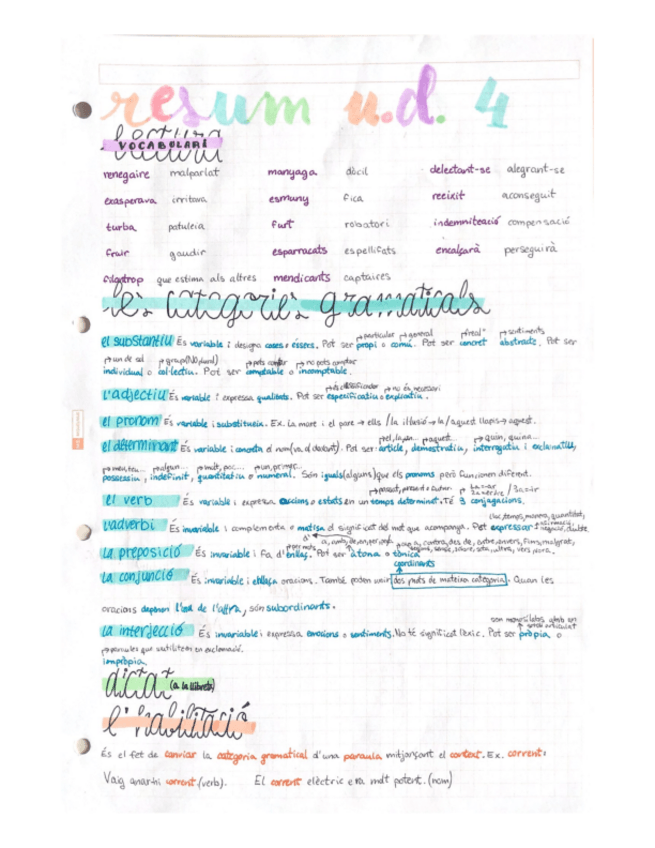 resum u.d. 4
lectura
VOCABULARI
renegaire malparlat manyaga dòcil delectant-se alegrant-se
exasperava irritava esmuny fica reeixit aconseguit
turba patuleia furt robatori indemnització compensació
fruir gaudir esparracats espellifats encalçarà perseguirà
filantrop que estima als altres mendicants captaires
les categories gramaticals
particular general "real" sentiments
el substantiu És variable i designa coses o éssers. Pot ser propi o comú. Pot ser concret abstracte. Pot ser
un de sol grup(NO plural) pots comptar no pots comptar
individual o col·lectiu. Pot ser comptable o incomptable.
és classificador no és necessari
l'adjectiu És variable i expressa qualitats. Pot ser especificatiu o explicatiu.
el pronom És variable i substitueix. Ex. La mare i el pare → ells / la il·lusió → la / aquest llapis → aquest.
el, la, un... aquest... quin, quina...
el determinant És variable i concreta el nom (va al davant). Pot ser: article, demostratiu, interrogatiu i exclamatiu,
meu, teu... algun... molt, poc... un, primer...
possessiu, indefinit, quantitatiu o numeral. Són iguals (alguns) que els pronoms però funcionen diferent.
passat, present o futur
el verb És variable i expressa accions o estats en un temps determinat. Té 3 conjugacions.
lloc, temps, manera, quantitat,
l'adverbi És invariable i complementa o matisa el significat del mot que acompanya. Pot expressar afirmació, negació, dubte
a, amb, de, en, per, a contra, des de, entre, envers, fins, malgrat,
la preposició És invariable i fa d'enllaç. Pot ser àtona o tònica segons, sense, sobre, sota, ultra, vers, para.
coordinants
la conjunció És invariable i enllaça oracions. També poden unir dos mots de mateixa categoria. Quan les
oracions depenen l'una de l'altra, són subordinants.
són monosíl·labs amb un
la interjecció És invariable i expressa emocions o sentiments. No té significat lèxic. Pot ser pròpia o
paraules que s'utilitzen en exclamació.
impròpia.
dictat (a la llibreta)
l'habilitació
És el fet de canviar la categoria gramatical d'una paraula mitjançant el context. Ex. corrent:
Vaig anar-hi corrent (verb). El corrent elèctric era molt potent. (nom)